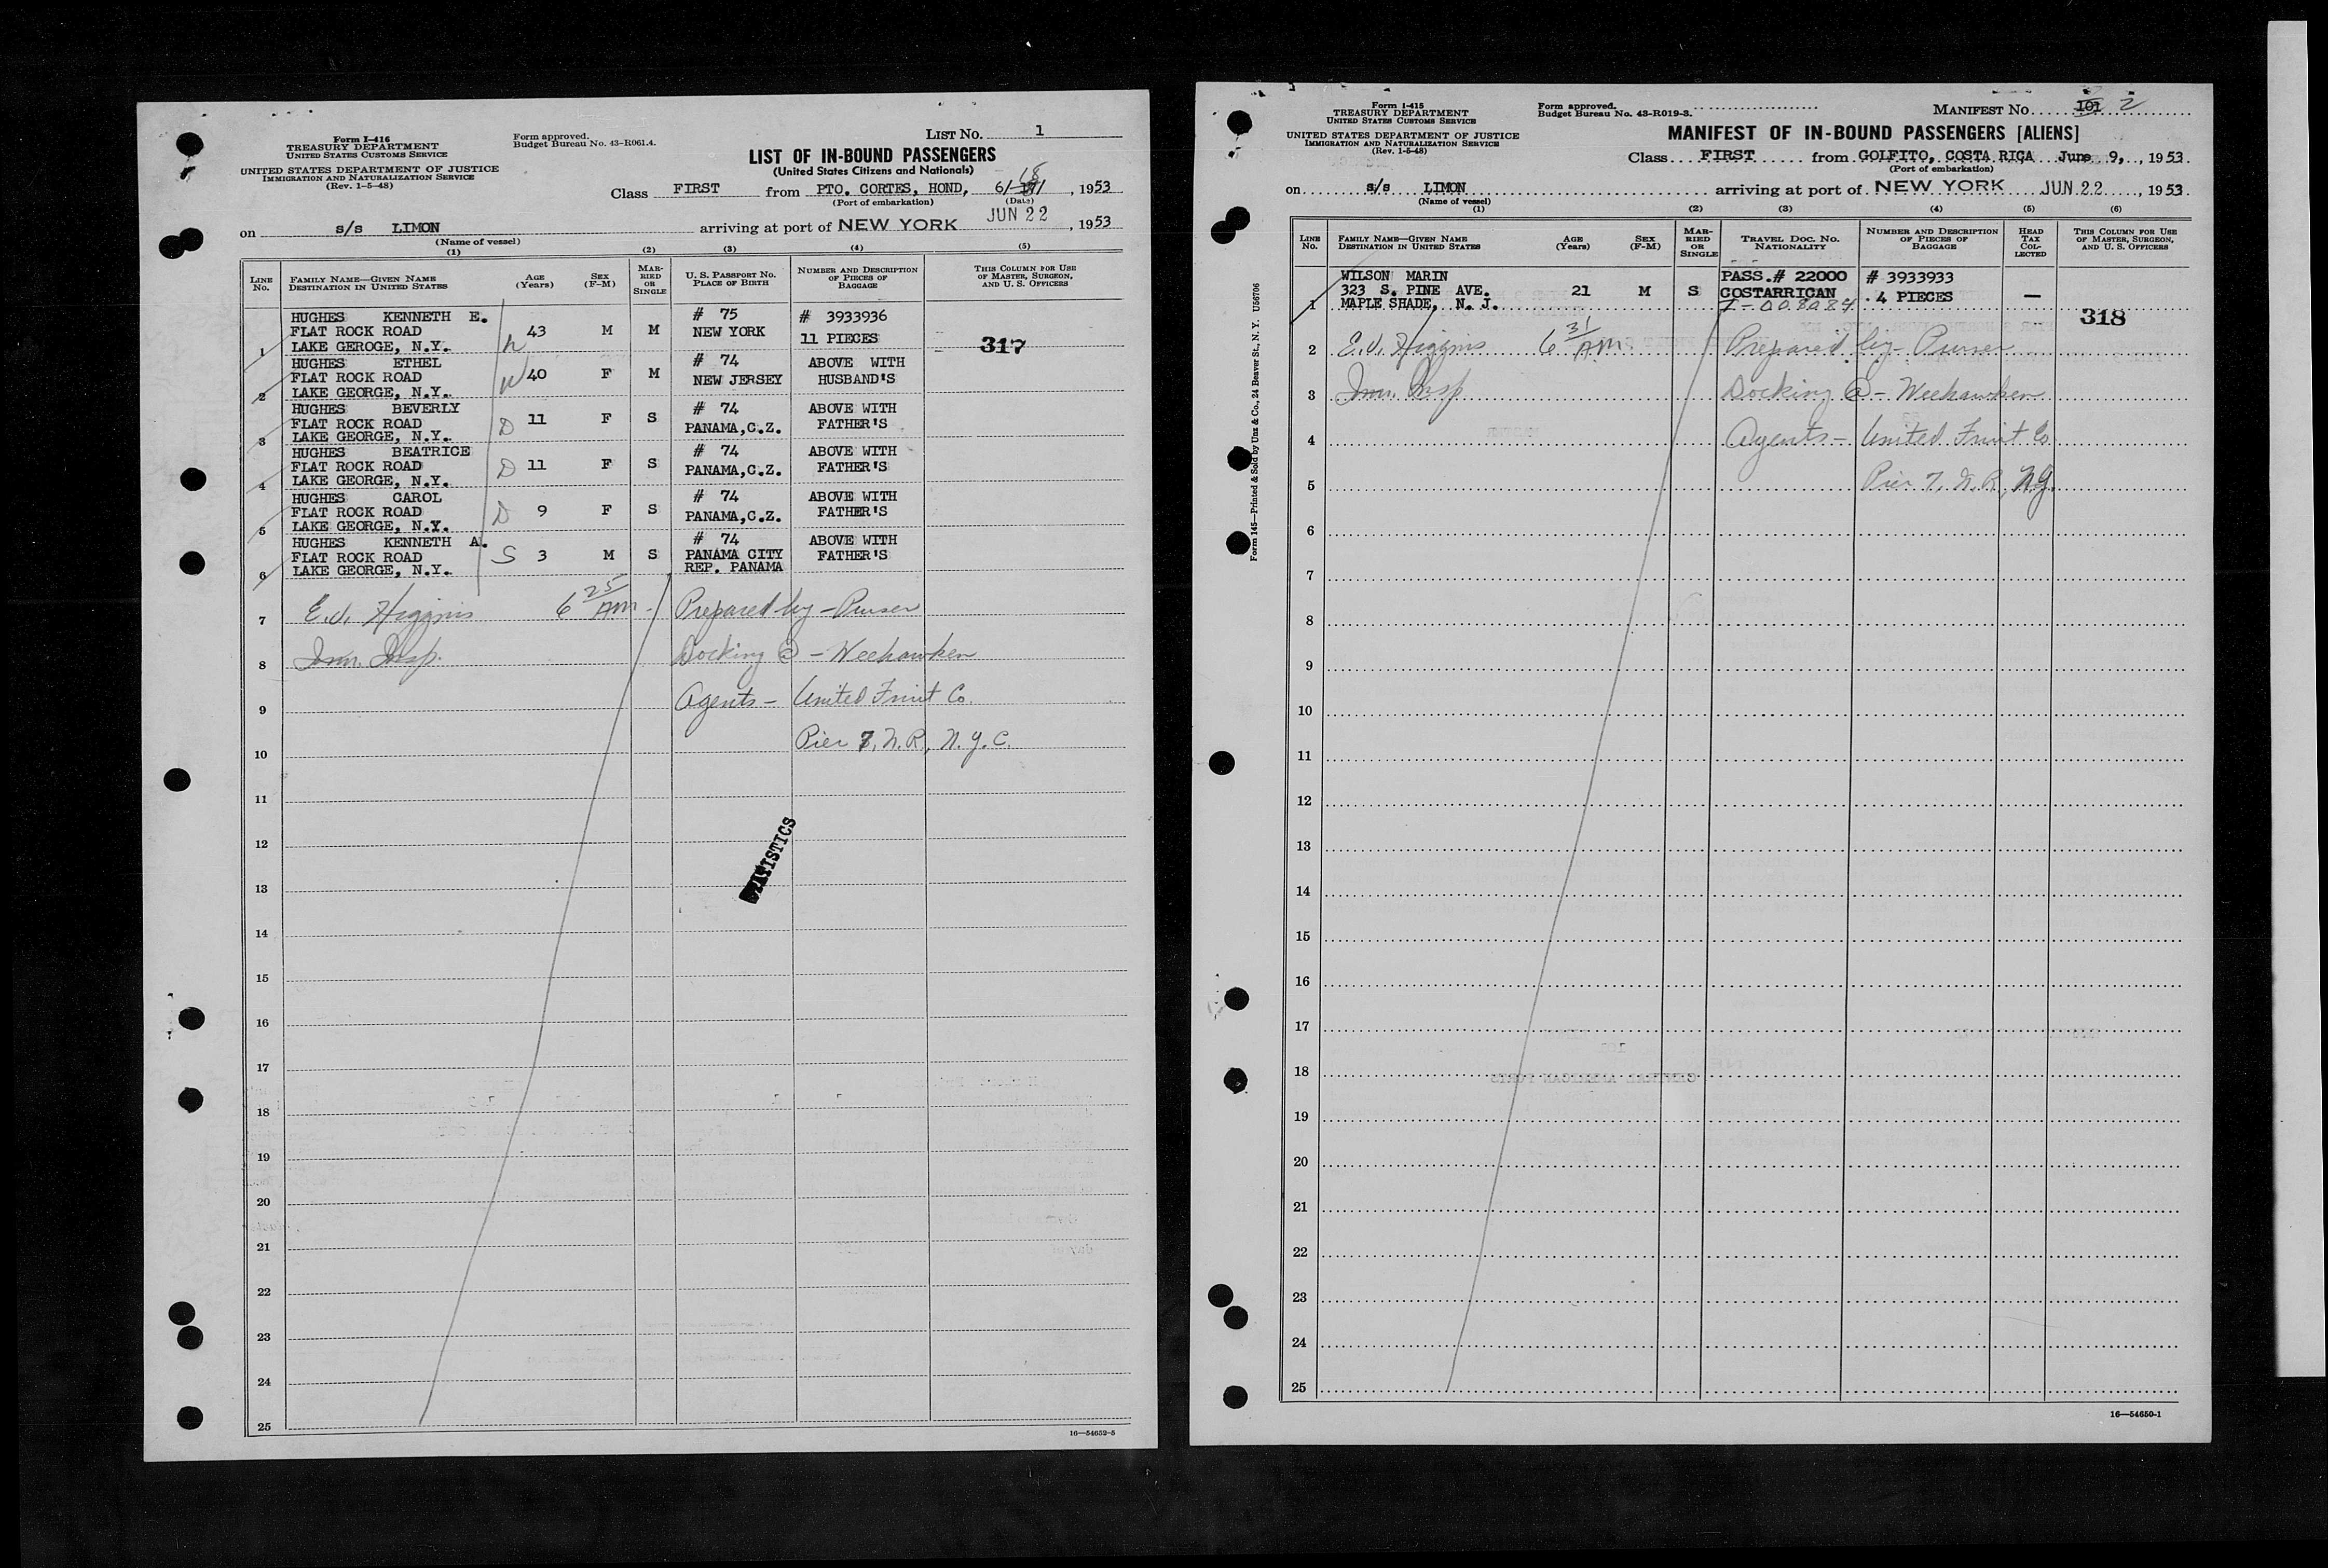 Form I-416
TREASURY DEPARTMENT
UNITED STATES CUSTOMS SERVICE
UNITED STATES DEPARTMENT OF JUSTICE
IMMIGRATION AND NATURALIZATION SERVICE
(Rev. 1-5-48)
Form approved.
Budget Bureau No. 43-R061.4.
LIST NO. 1
LIST OF IN-BOUND PASSENGERS
(United States Citizens and Nationals)
Class FIRST from PTO. CORTES, HOND, 6/18/, 1953
(Port of embarkation) (Date)
on s/s LIMON arriving at port of NEW YORK JUN 22, 1953
(Name of vessel)
(1) (2) (3) (4) (5)
LINE NO. FAMILY NAME—GIVEN NAME DESTINATION IN UNITED STATES AGE (Years) SEX (F-M) MARRIED OR SINGLE U. S. PASSPORT NO. PLACE OF BIRTH NUMBER AND DESCRIPTION OF PIECES OF BAGGAGE THIS COLUMN FOR USE OF MASTER, SURGEON, AND U. S. OFFICERS
HUGHES KENNETH E. # 75 # 3933936
FLAT ROCK ROAD 43 M M NEW YORK 11 PIECES 317
1 LAKE GEROGE, N.Y.
HUGHES ETHEL # 74 ABOVE WITH
FLAT ROCK ROAD W 40 F M NEW JERSEY HUSBAND'S
2 LAKE GEORGE, N.Y.
HUGHES BEVERLY # 74 ABOVE WITH
FLAT ROCK ROAD D 11 F S PANAMA,C.Z. FATHER'S
3 LAKE GEORGE, N.Y.
HUGHES BEATRICE # 74 ABOVE WITH
FLAT ROCK ROAD D 11 F S PANAMA,C.Z. FATHER'S
4 LAKE GEORGE, N.Y.
HUGHES CAROL # 74 ABOVE WITH
FLAT ROCK ROAD D 9 F S PANAMA,C.Z. FATHER'S
5 LAKE GEORGE, N.Y.
HUGHES KENNETH A. # 74 ABOVE WITH
FLAT ROCK ROAD S 3 M S PANAMA CITY FATHER'S
6 LAKE GEORGE, N.Y. REP. PANAMA
7 E.J. Higgins 6 25 AM. Prepared by - Purser
8 Imm. Insp. Docking @ - Weehawken
9 Agents - United Fruit Co.
10 Pier 7, N.R., N.Y.C.
11
12
STATISTICS
13
14
15
16
17
18
19
20
21
22
23
24
25
16—54652-5
Form I-415
TREASURY DEPARTMENT
UNITED STATES CUSTOMS SERVICE
UNITED STATES DEPARTMENT OF JUSTICE
IMMIGRATION AND NATURALIZATION SERVICE
(Rev. 1-5-48)
Form approved.
Budget Bureau No. 43-R019-3.
MANIFEST NO. 101 2
MANIFEST OF IN-BOUND PASSENGERS [ALIENS]
Class FIRST from GOLFITO, COSTA RICA June 9, 1953
(Port of embarkation)
on s/s LIMON arriving at port of NEW YORK JUN 22, 1953
(Name of vessel)
(1) (2) (3) (4) (5) (6)
LINE NO. FAMILY NAME—GIVEN NAME DESTINATION IN UNITED STATES AGE (Years) SEX (F-M) MARRIED OR SINGLE TRAVEL DOC. NO. NATIONALITY NUMBER AND DESCRIPTION OF PIECES OF BAGGAGE HEAD TAX COLLECTED THIS COLUMN FOR USE OF MASTER, SURGEON, AND U. S. OFFICERS
WILSON MARIN PASS.# 22000 # 3933933
323 S. PINE AVE. 21 M S COSTARRICAN 4 PIECES —
1 MAPLE SHADE, N. J. I-008084 318
2 E.J. Higgins 6 31 AM. Prepared by - Purser
3 Imm. Insp Docking @ - Weehawken
4 Agents - United Fruit Co
5 Pier 7, N.R., N.Y.
6
7
8
9
10
11
12
13
14
15
16
17
18
19
20
21
22
23
24
25
16—54650-1
Form 145—Printed & Sold by Unz & Co., 24 Beaver St., N. Y. U56706